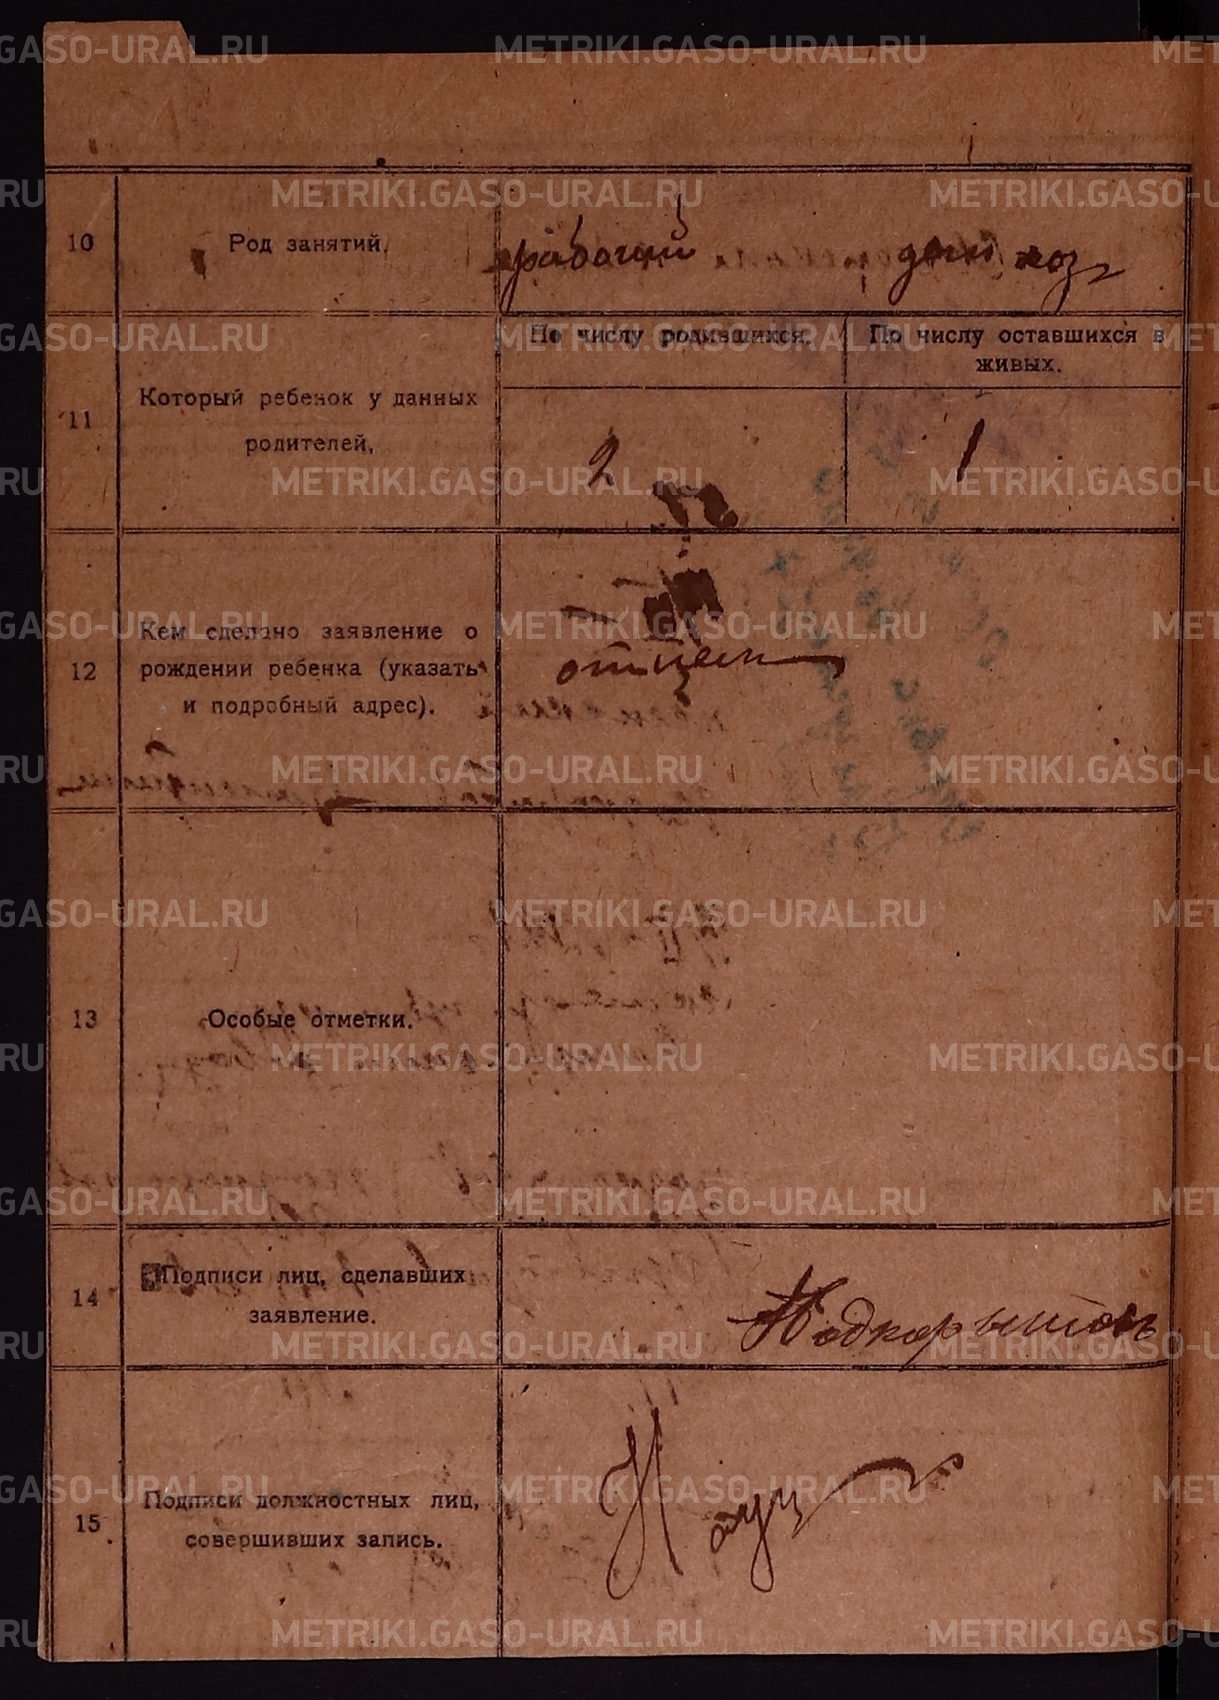 10
Род занятий.
рабочий
дом хоз
11
Который ребенок у данных
родителей.
По числу родившихся.
По числу оставшихся в
живых.
2
1
12
Кем сделано заявление о
рождении ребенка (указать
и подробный адрес).
отцем
13
Особые отметки.
14
Подписи лиц, сделавших
заявление.
Подкорытовъ
15
Подписи должностных лиц,
совершивших запись.
METRIKI.GASO-URAL.RU